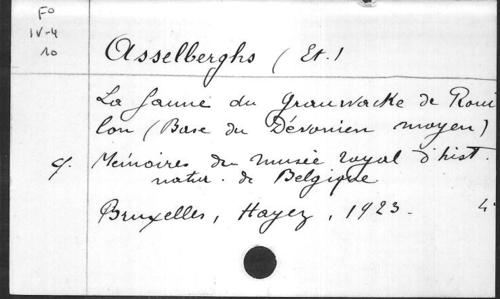 Fo
IV-4
10
Asselberghs (Et.)
La faune du grauwacke de Roui
lon (Base du Dévonien moyen)
cf. Mémoires du musée royal d'hist.
natur. de Belgique
Bruxelles, Hayez, 1923. 4°